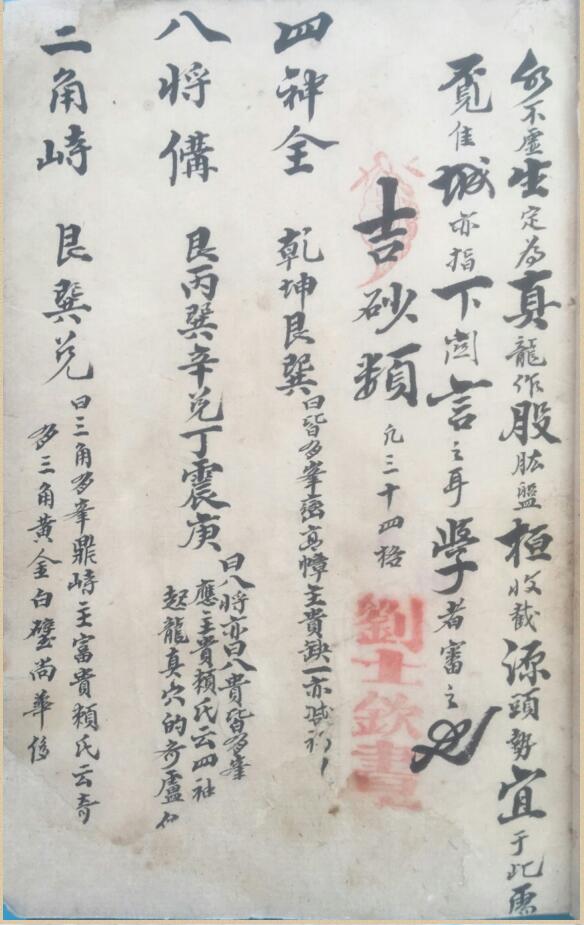 不虛生定為真龍作股肱盤桓收截源頭勢宜于此
覓佳城亦指下言之耳學者審之
吉砂類 凡三十四格
劉士欽書
四神全 乾坤艮巽 曰皆多峯高主貴缺一亦減
八將備 艮丙巽辛兌丁震庚 曰八將亦曰八貴皆多峯
應主貴賴氏云四神
起龍真穴的奇
三角峙 艮巽兌 曰三角多峯鼎峙主富貴賴氏云奇
多三角黃金白璧尚華侈